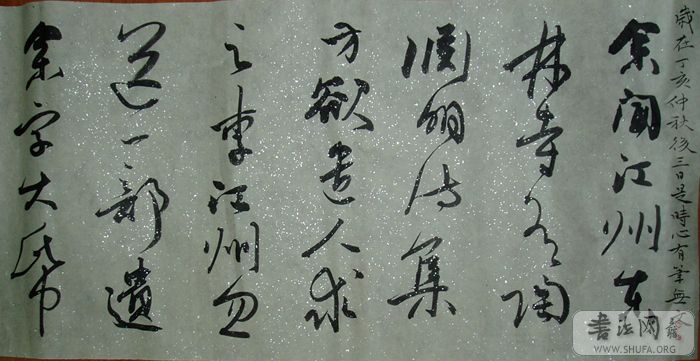 歲在丁亥仲秋後三日是時心有筆無
余闻江州东
林寺有陶
渊明诗集
方欲遣人求
之李江州忽
送一部遗
余字大纸
书法网
WWW.SHUFA.ORG